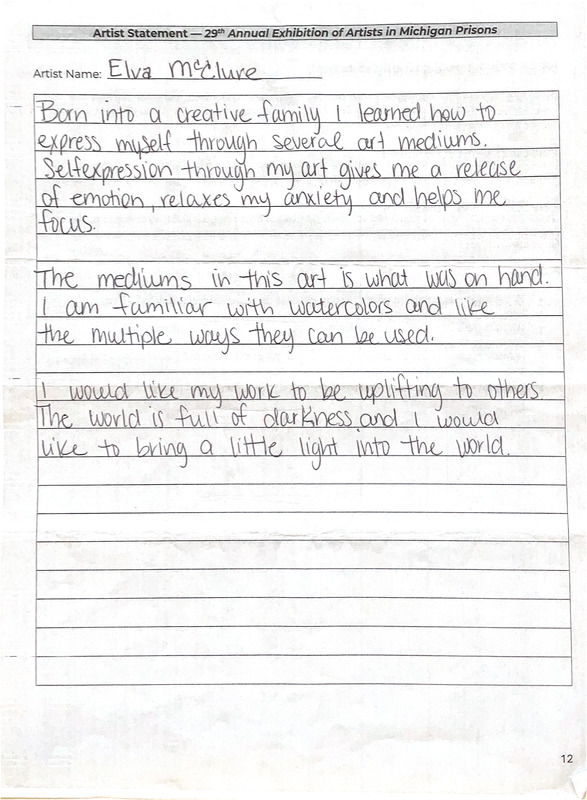 Artist Statement — 29th Annual Exhibition of Artists in Michigan Prisons
Artist Name: Elva McClure
Born into a creative family I learned how to
express myself through several art mediums.
Selfexpression through my art gives me a release
of emotion, relaxes my anxiety and helps me
focus.
The mediums in this art is what was on hand.
I am familiar with watercolors and like
the multiple ways they can be used.
I would like my work to be uplifting to others
The world is full of darkness and I would
like to bring a little light into the world.
12